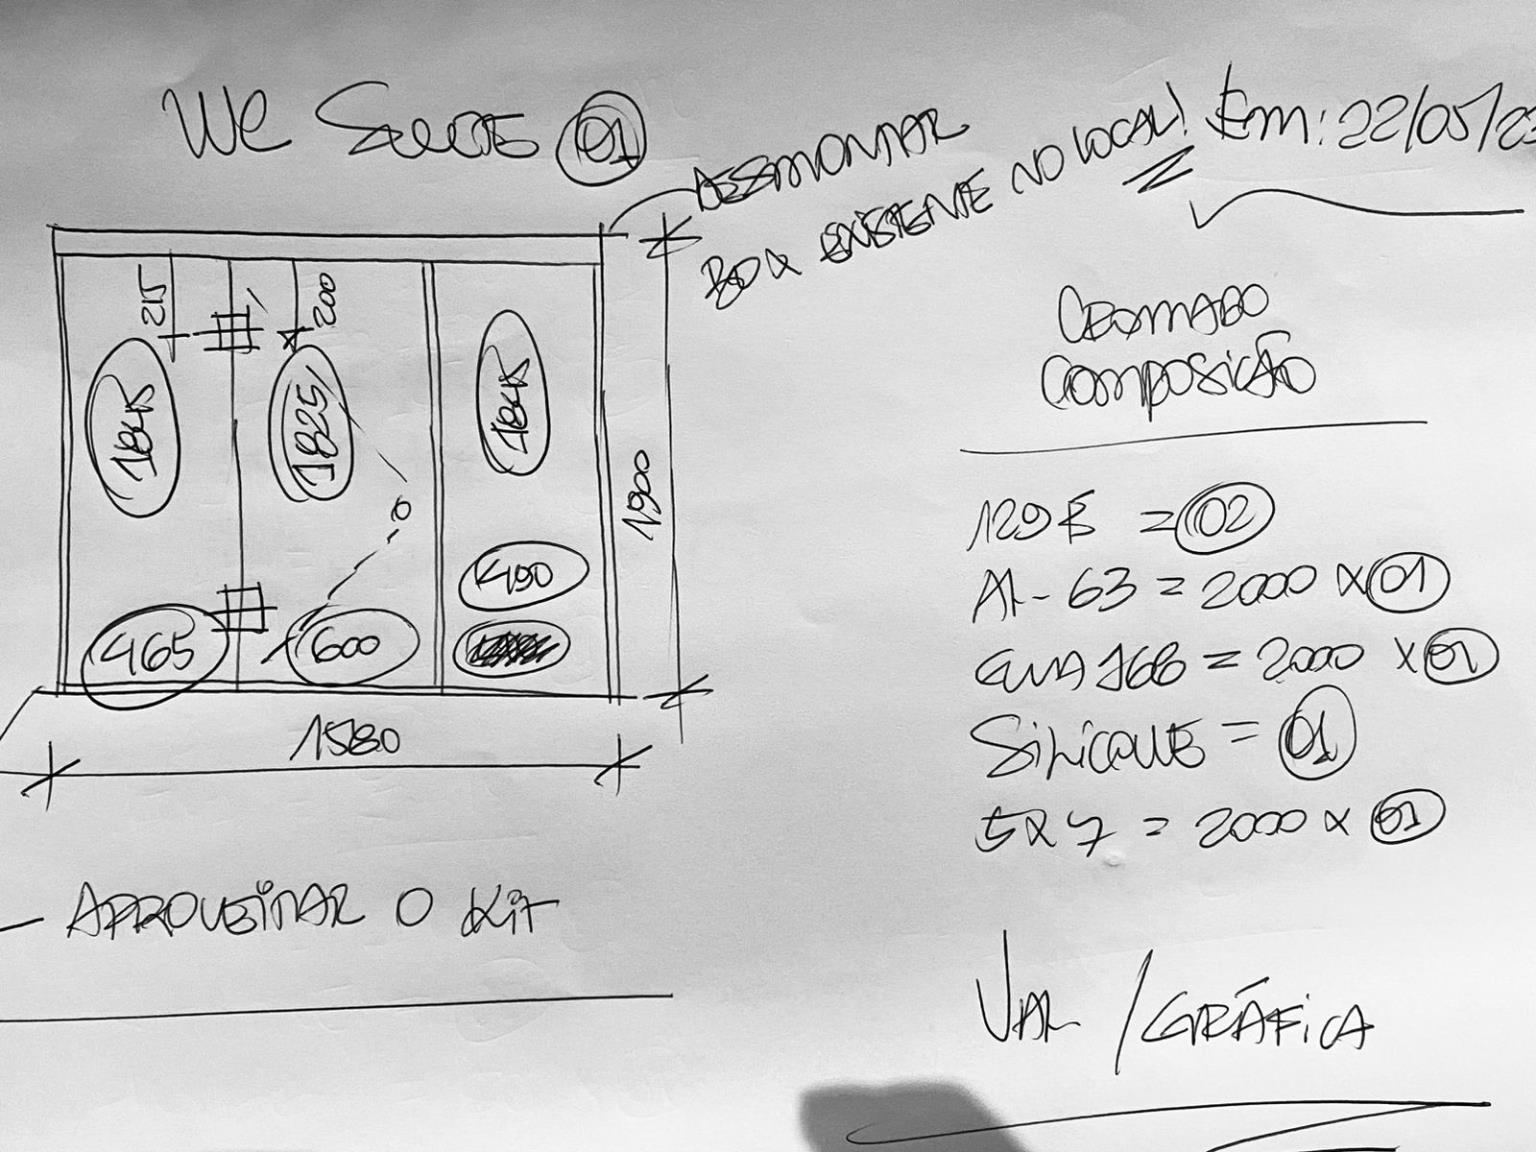 WC SUITE 01
DESMONTAR
BOX EXISTENTE NO LOCAL! Em: 22/05/23
215
200
1845
1825
1845
1900
490
465
600
1580
CROMADO
COMPOSIÇÃO
129E = 02
AL-63 = 2000 X 01
2000 X 01
SILICONE = 01
2000 X 01
- APROVEITAR O KIT
VAL / GRÁFICA